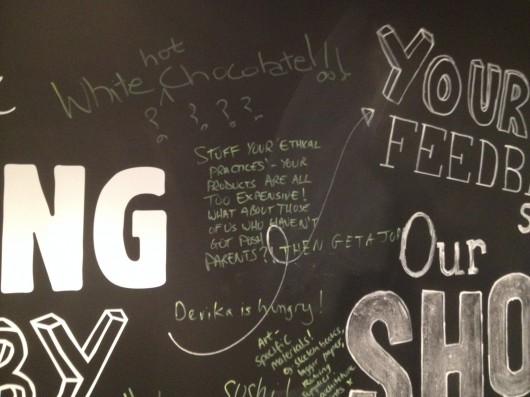 hot
White Chocolate!!
? ? ? ?
YOUR
FEEDB
STUFF YOUR 'ETHICAL
PRACTICES' - YOUR
PRODUCTS ARE ALL
TOO EXPENSIVE!
WHAT ABOUT THOSE
OF US WHO HAVEN'T
GOT POSH
PARENTS?
THEN GET A JOB
NG
Our
SHO
BY
Devika is hungry!
Art-
specific
materials!
eg sketchbooks,
bigger paper,
Sushi!